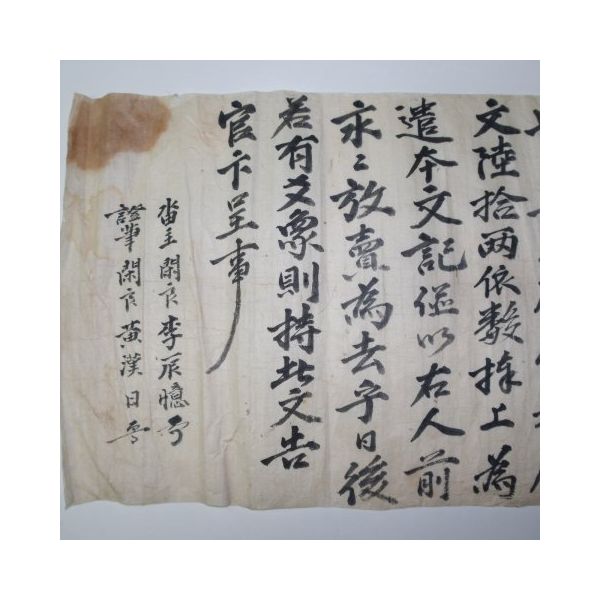 文陸拾兩依數捧上為
遣本文記並以右人前
永〻放賣為去乎日後
若有爻象則持此文告
官卞呈事
畓主閑良李辰憶
證筆閑良黃漢日